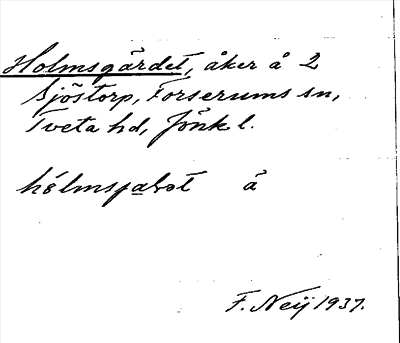 Holmsgärdet, åker å 2
Sjöstorp, Forserums sn,
Tveta hd, Jönk l.
å
F. Neij 1937.